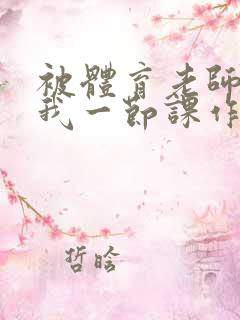 被體育老師
我一節課作
哲晗